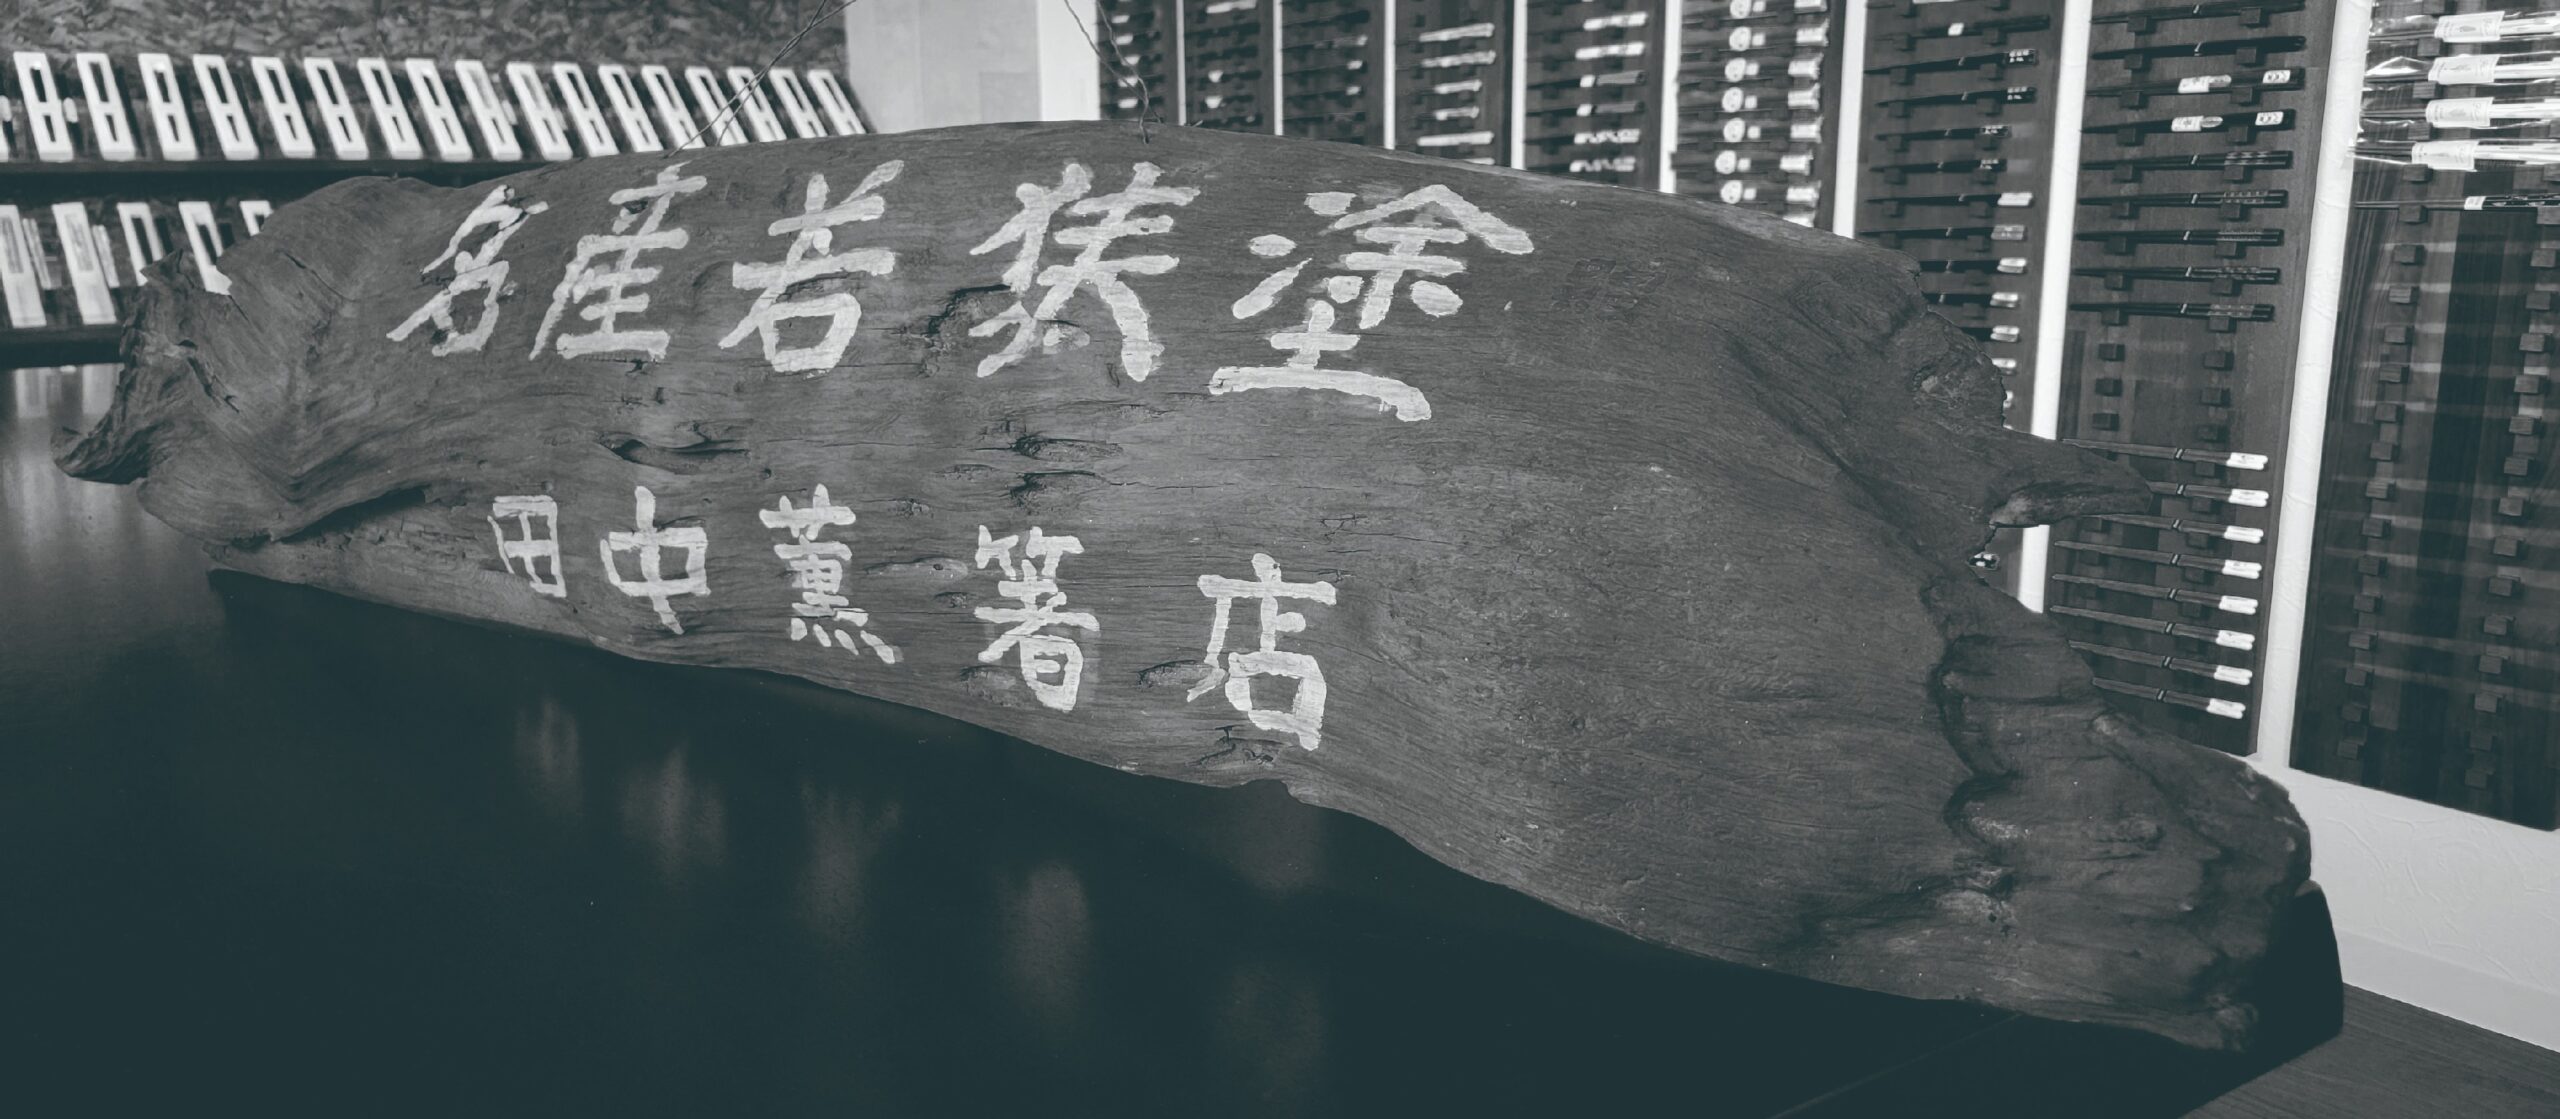 名産若狭塗
田中薫箸店